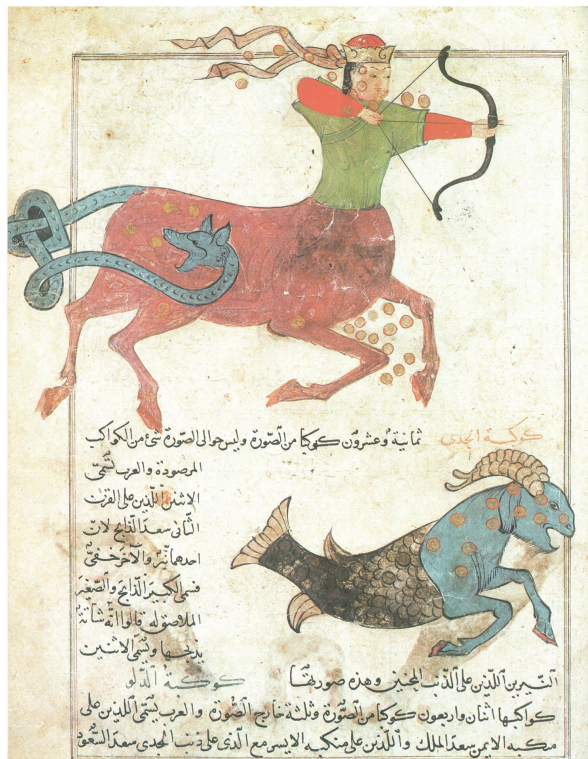 كوكبة الجدي ثمانية وعشرون كوكبا من الصورة وليس حوالى الصورة شئ من الكواكب
المرصودة والعرب تسمى
الاثنين اللذين على القرن
الثانى سعد الذابح لان
احدهما نير والاخر خفى
فسمى الكبير الذابح والصغير
الملاصق له قالوا انه شاته
يذبحها وتسمى الاثنين
النيرين اللذين على الذنب المحبين وهذه صورتها كوكبة الدلو
كواكبها اثنان واربعون كوكبا من الصورة وثلثة خارج الصورة والعرب تسمى اللذين على
منكبه الايمن سعد الملك واللذين على منكبه الايسر مع الذى على ذنب الجدى سعد السعود